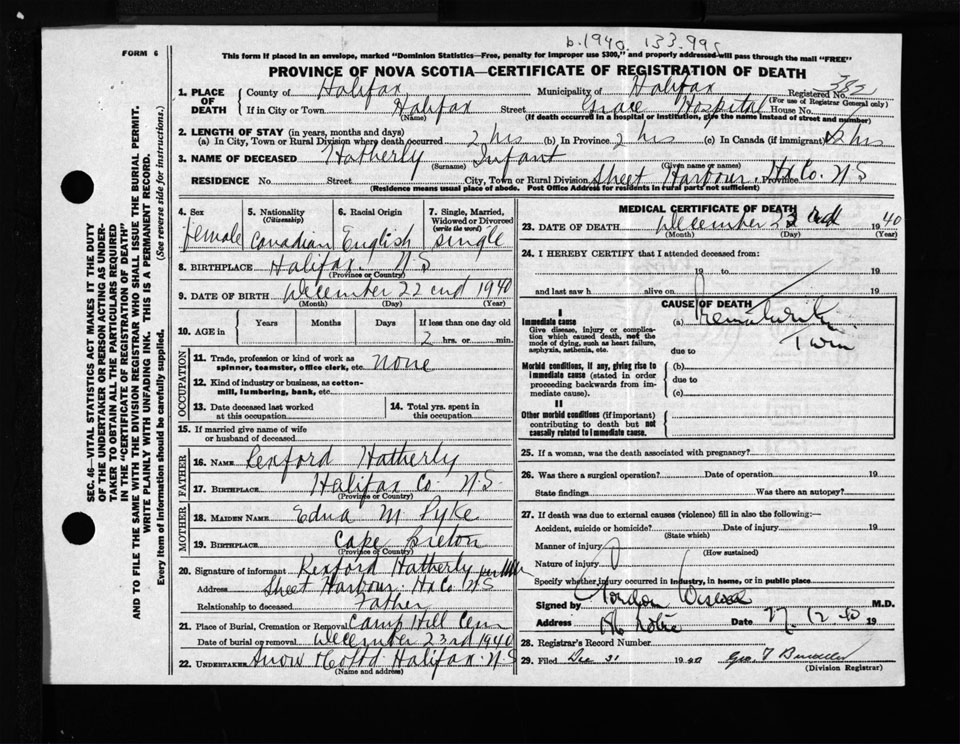 b. 1940. 133.995
FORM 6
This form if placed in an envelope, marked "Dominion Statistics—Free, penalty for improper use $300," and properly addressed will pass through the mail "FREE"
PROVINCE OF NOVA SCOTIA—CERTIFICATE OF REGISTRATION OF DEATH
1. PLACE OF DEATH
County of Halifax Municipality of Halifax Registered No. 382
(For use of Registrar General only)
If in City or Town Halifax Street Grace Hospital House No.
(Name) (If death occurred in a hospital or institution, give the name instead of street and number)
2. LENGTH OF STAY (in years, months and days)
(a) In City, Town or Rural Division where death occurred 2 hrs (b) In Province 2 hrs (c) In Canada (if immigrant) 2 hrs
3. NAME OF DECEASED Hatherly Infant
(Surname) (Given name or names)
RESIDENCE No. Street City, Town or Rural Division Sheet Harbour, Province Hx Co. N S
(Residence means usual place of abode. Post Office Address for residents in rural parts not sufficient)
4. Sex 5. Nationality (Citizenship) 6. Racial Origin 7. Single, Married, Widowed or Divorced (write the word)
Female Canadian English Single
8. BIRTHPLACE Halifax. N S
(Province or Country)
9. DATE OF BIRTH December 22nd 1940
(Month) (Day) (Year)
10. AGE in Years Months Days If less than one day old
2 hrs. or min.
OCCUPATION
11. Trade, profession or kind of work as spinner, teamster, office clerk, etc. none
12. Kind of industry or business, as cotton-mill, lumbering, bank, etc.
13. Date deceased last worked at this occupation
14. Total yrs. spent in this occupation
15. If married give name of wife or husband of deceased
FATHER
16. NAME Rexford Hatherly
17. BIRTHPLACE Halifax Co N.S.
(Province or Country)
MOTHER
18. MAIDEN NAME Edna M Pyke
19. BIRTHPLACE Cape Breton
(Province or Country)
20. Signature of informant Rexford Hatherly
Address Sheet Harbour. Hx Co N S
Relationship to deceased Father
21. Place of Burial, Cremation or Removal Camp Hill Cem
Date of burial or removal December 23rd 1940
22. UNDERTAKER Snow Co Ltd. Halifax. N S
(Name and address)
MEDICAL CERTIFICATE OF DEATH
23. DATE OF DEATH December 19 40
(Month) (Day) (Year)
24. I HEREBY CERTIFY that I attended deceased from:
19 to 19
and last saw h alive on 19
CAUSE OF DEATH
I
Immediate cause
Give disease, injury or complication which caused death, not the mode of dying, such as heart failure, asphyxia, asthenia, etc.
(a) Prematurity
Twin
due to
Morbid conditions, if any, giving rise to immediate cause (stated in order proceeding backwards from immediate cause).
(b)
due to
(c)
II
Other morbid conditions (if important) contributing to death but not causally related to immediate cause.
25. If a woman, was the death associated with pregnancy?
26. Was there a surgical operation? Date of operation 19
State findings Was there an autopsy?
27. If death was due to external causes (violence) fill in also the following:—
Accident, suicide or homicide? Date of injury 19
(State which)
Manner of injury
(How sustained)
Nature of injury
Specify whether injury occurred in industry, in home, or in public place
Signed by Gordon M.D.
Address Date 27. 12 40 19
28. Registrar's Record Number
29. Filed Dec 31 1940 Geo. T
(Division Registrar)
SEC. 46—VITAL STATISTICS ACT MAKES IT THE DUTY
OF THE UNDERTAKER OR PERSON ACTING AS UNDER-
TAKER TO OBTAIN ALL THE PARTICULARS REQUIRED
IN THE "CERTIFICATE OF REGISTRATION OF DEATH"
AND TO FILE THE SAME WITH THE DIVISION REGISTRAR WHO SHALL ISSUE THE BURIAL PERMIT.
WRITE PLAINLY WITH UNFADING INK. THIS IS A PERMANENT RECORD.
Every item of information should be carefully supplied. (See reverse side for instructions.)